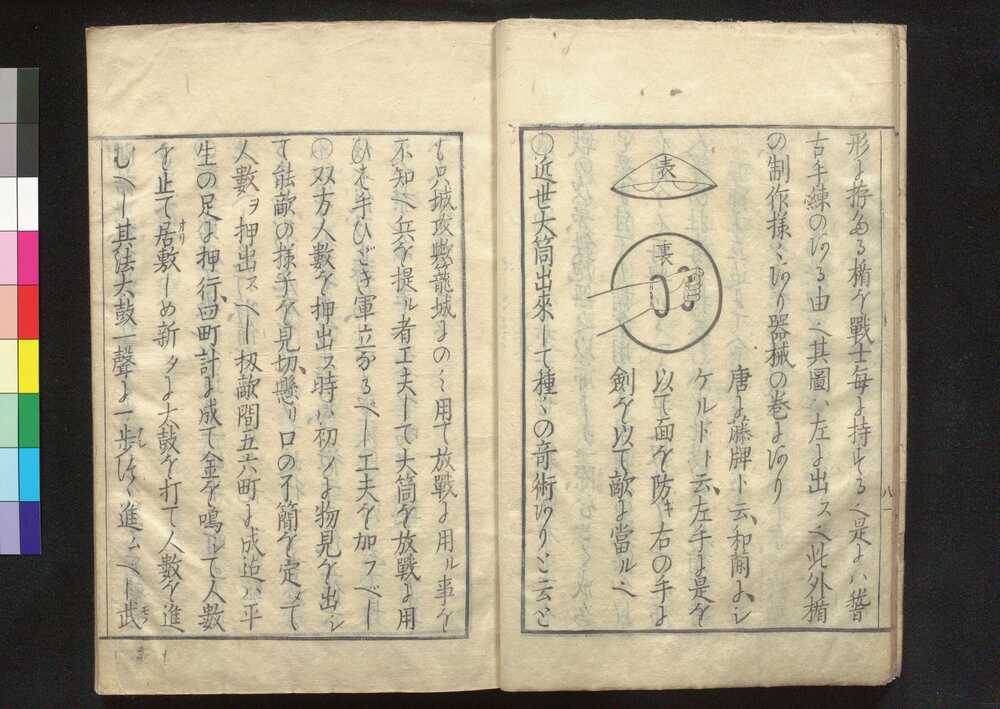 形に拵たる楯を戰士毎に持する也是にハ誓
古手練のある由也其圖ハ左に出ス也此外楯
の制作様〻あり器械の巻にあり
表
裏
唐に藤牌ト云和蘭に
ケルドト云左手に是を
以て面を防キ右の手に
劍を以て敵に當ル也
○近世大筒出來して種〻の奇術ありと云と
も只城攻與籠城にのミ用て放戰に用ル事を
不知也兵を提ル者工夫して大筒を放戰に用
ひは手ひどき軍立なるへし工夫を加フへし
双方人數を押出ス時ハ初メに物見を出シ
て能敵の様子を見切懸り口の不簡を定メて
人數ヲ押出スへし扨敵間五六町に成迄ハ平
生の足に押行四町計に成て金を鳴して人數
を止て居敷しめ新タに太鼓を打て人數を進
むへし其法太鼓一聲に一歩ツヽ進ムへし武